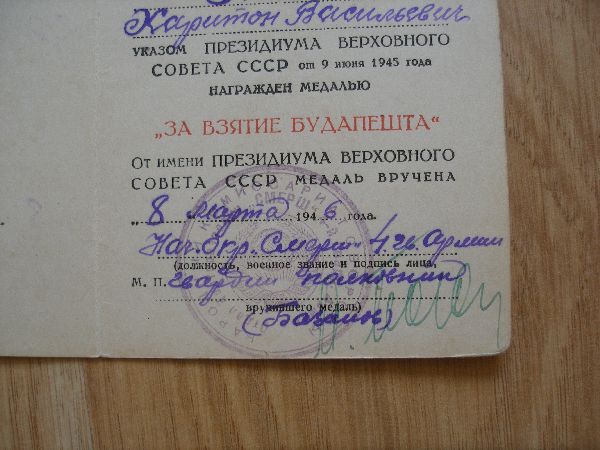 Харитон Васильевич
УКАЗОМ ПРЕЗИДИУМА ВЕРХОВНОГО
СОВЕТА СССР от 9 июня 1945 года
НАГРАЖДЕН МЕДАЛЬЮ
„ЗА ВЗЯТИЕ БУДАПЕШТА“
От имени ПРЕЗИДИУМА ВЕРХОВНОГО
СОВЕТА СССР МЕДАЛЬ ВРУЧЕНА
„8 марта 1946 года.
Нач. Окр. Смерш 4 гв. Армии
(должность, военное звание и подпись лица,
М. П. Гвардии полковник
вручившего медаль)
СМЕРШ